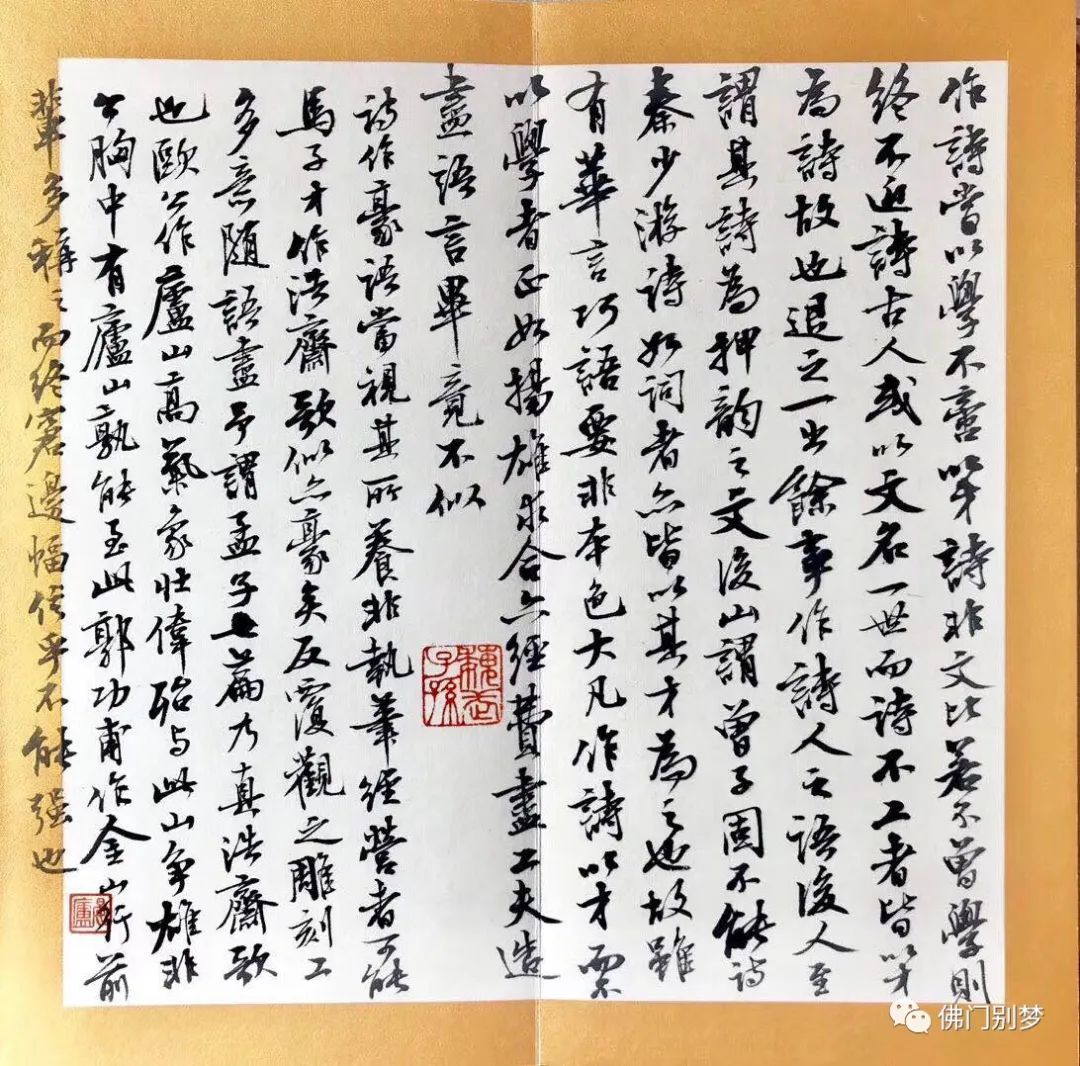 作詩當以學不當以才詩非文比若不曾學則
終不近詩古人或以文名一世而詩不工者皆以才
為詩故也退之一出餘事作詩人之語後人至
謂其詩為押韵之文後山謂曾子固不能詩
秦少游詩如詞者亦皆以其才為之也故雖
有華言巧語要非本色大凡作詩以才而不
以學者正如揚雄求合六經費盡工夫造
盡語言畢竟不似
詩作豪語當視其所養非執筆經營者可能
馬子才作浩齋歌似亦豪矣反覆觀之雕刻工
多意隨語盡予謂孟子七篇乃真浩齋歌
也歐公作廬山高氣象壯偉殆与此山爭雄非
公胸中有廬山孰能至此郭功甫作金山行前
輩多稱之而終窘邊幅信乎不能强也
魏武子孫
佛门别梦